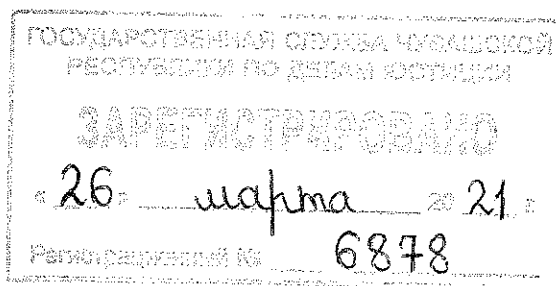 ГОСУДАРСТВЕННАЯ СЛУЖБА ЧУВАШСКОЙ
РЕСПУБЛИКИ ПО ДЕЛАМ ЮСТИЦИИ
ЗАРЕГИСТРИРОВАНО
« 26 » марта 20 21 г.
Регистрационный № 6878